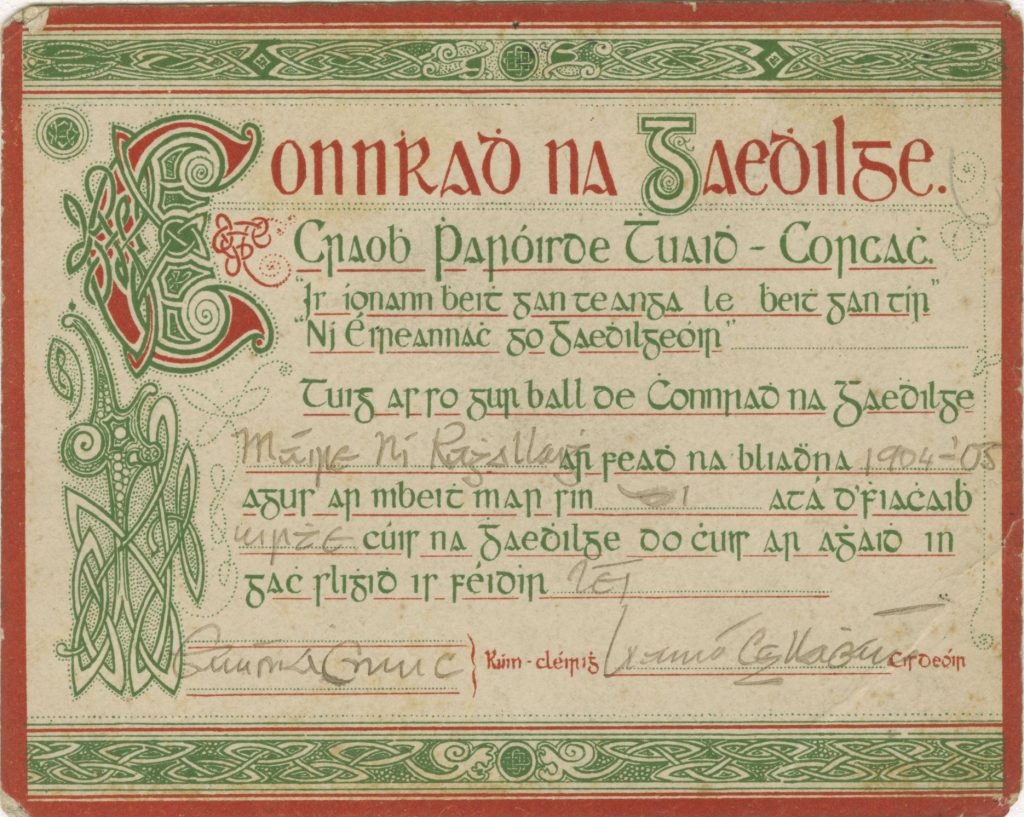 Connraḋ na Gaeḋilge.
Craoḃ Ṗaróisde Ṫuaiḋ - Corcaċ.
"Is ionann ḃeiṫ gan teanga le ḃeiṫ gan tír"
"Ní Éireannaċ go Gaeḋilgeóir"
Tuig as so gur ball de Ċonnraḋ na Gaeḋilge
Máire Ní Raġallaiġ ar feaḋ na bliaḋna 1904-'05
agus ar mbeiṫ mar sin di atá d'ḟiaċaiḃ
uirṫe cúis na Gaeḋilge do ċur ar aġaiḋ in
gaċ sliġiḋ is féidir léi
Rúin-cléiriġ Cisdeóir